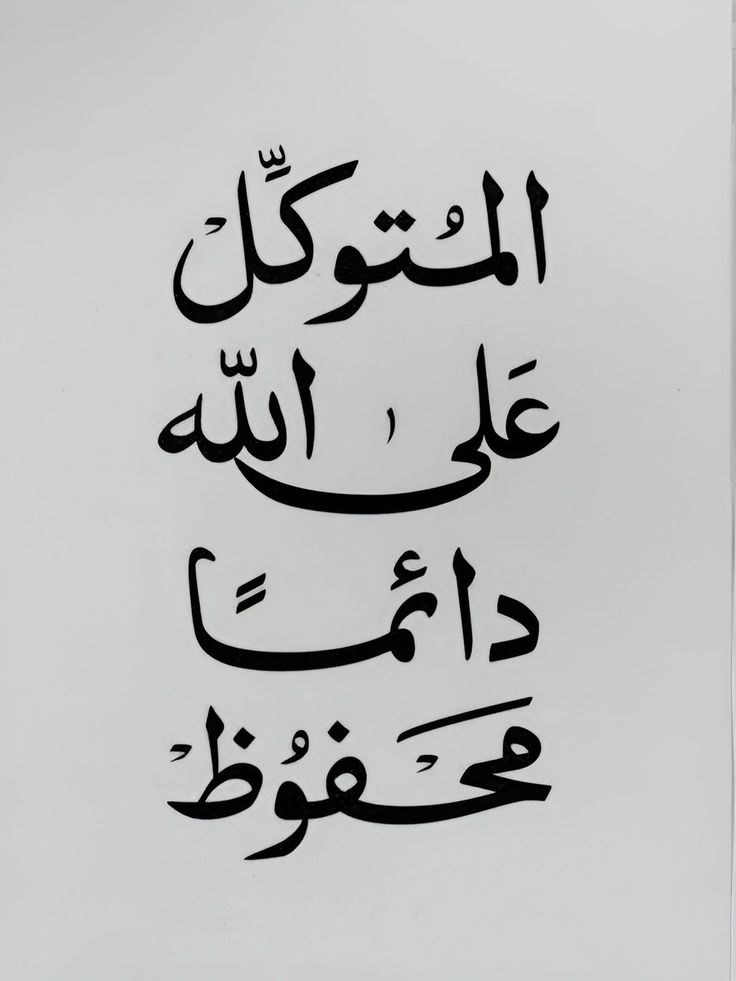 المُتوكِّلْ
عَلى اللّه
دائمًا
محْفُوظْ